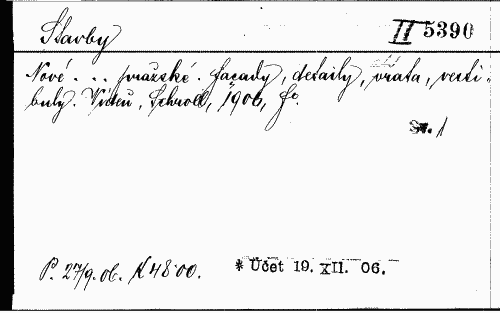 Stavby
II 5390
Nové . . . pražské. façady, detaily, vrata, vesti-
buly. Vídeň, Schroll, 1906, f°.
Sv. 1
P. 27/9. 06. K 48·00.
* Účet 19. XII. 06.